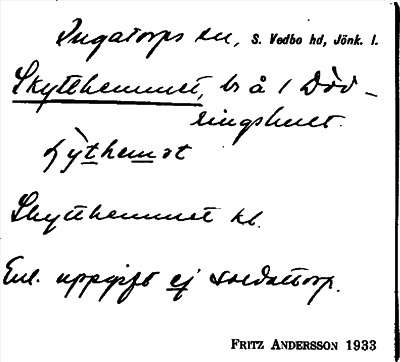 Ingatorps sn, S. Vedbo hd, Jönk. l.
Skytthemmet, bs å 1 Död-
ringshult.
Skytthemmet kl.
Enl. uppgift ej soldattorp.
FRITZ ANDERSSON 1933